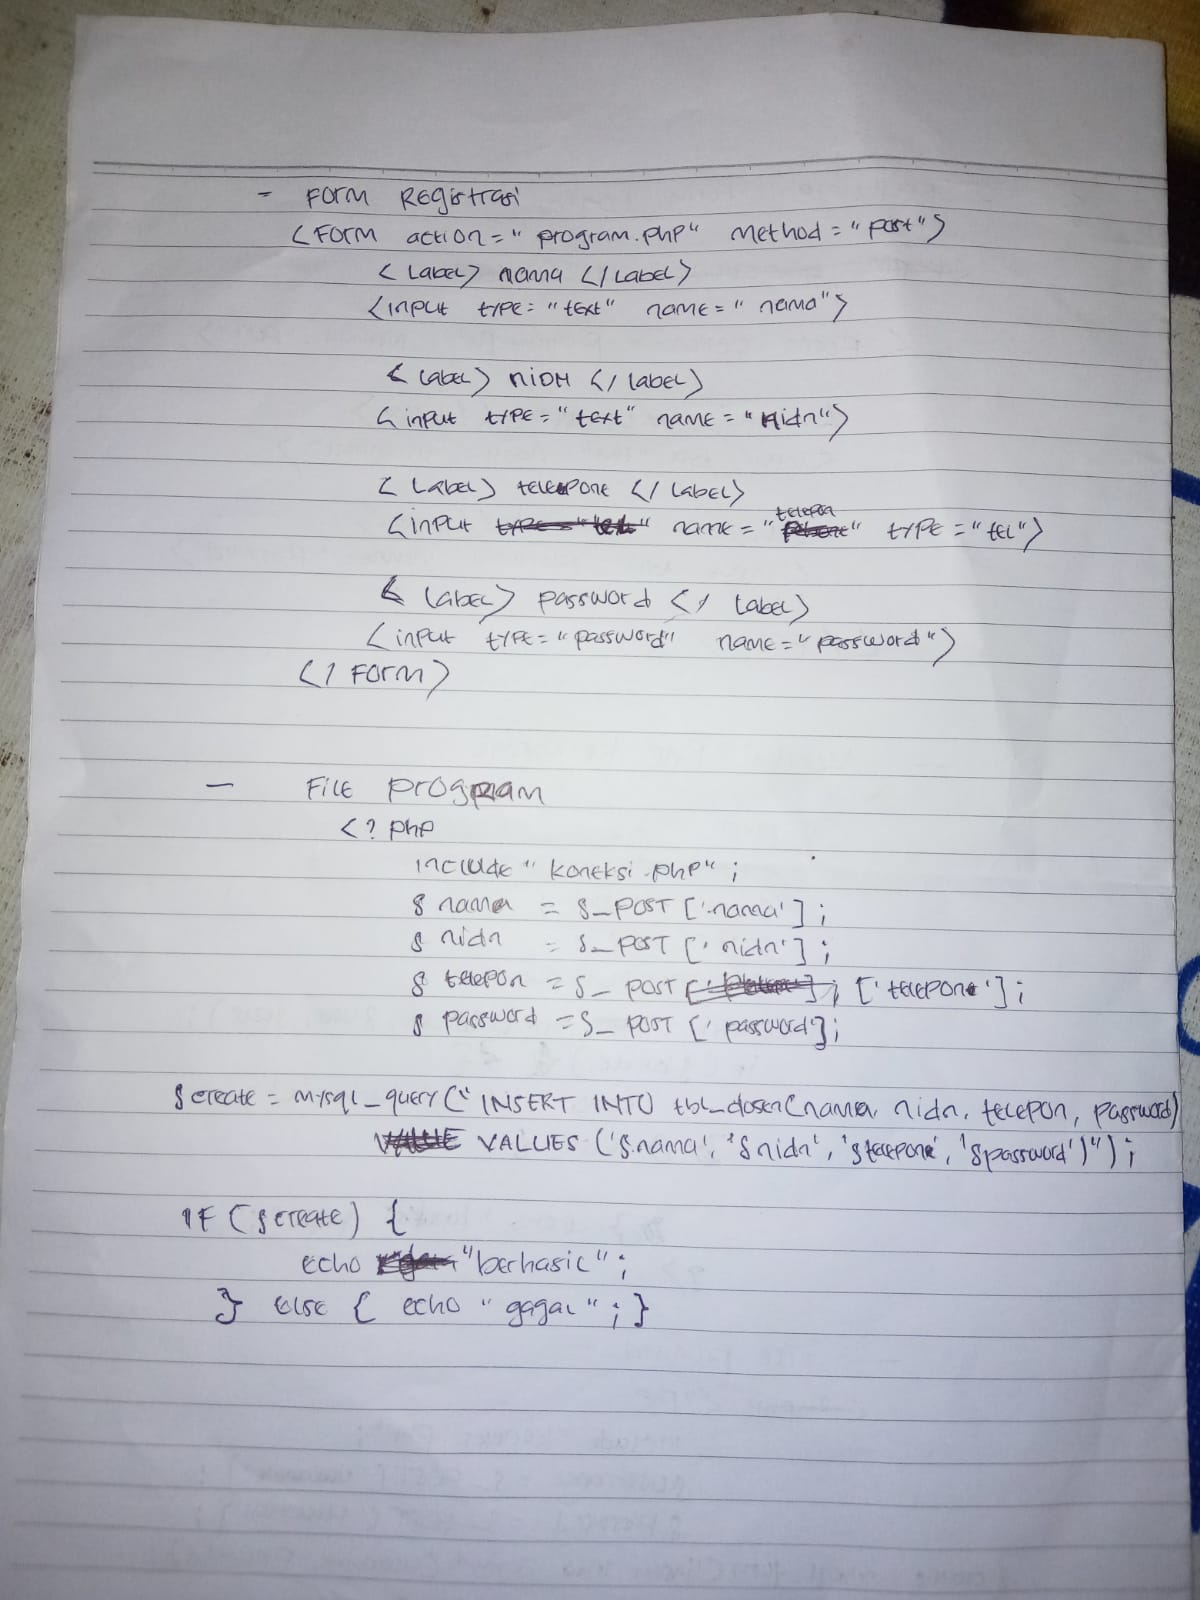 - Form Registrasi
<Form action="program.php" method="post">
<Label> nama </Label>
<input type="text" name="nama">
<Label> NIDN </Label>
<input type="text" name="nidn">
<Label> telepone </Label>
<input name="telepon" type="tel">
<Label> password </Label>
<input type="password" name="password">
</Form>
- File program
<?php
include "koneksi.php";
$nama = $_POST['nama'];
$nidn = $_POST['nidn'];
$telepon = $_POST['telepone'];
$password = $_POST['password'];
$create = mysql_query("INSERT INTO tbl_dosen(nama, nidn, telepon, password)
VALUES ('$nama', '$nidn', '$telepone', '$password')");
IF ($create) {
echo "berhasil";
} else { echo "gagal"; }